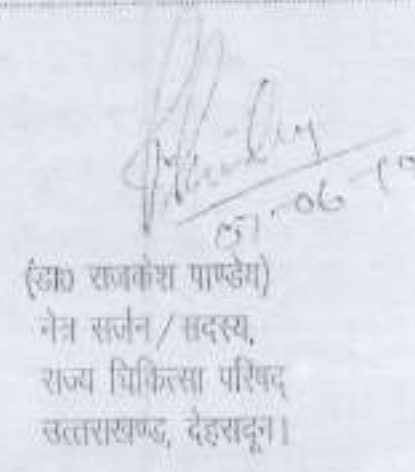 (डा0 राजकेश पाण्डेय)
नेत्र सर्जन / सदस्य,
राज्य चिकित्सा परिषद्
उत्तराखण्ड, देहरादून।